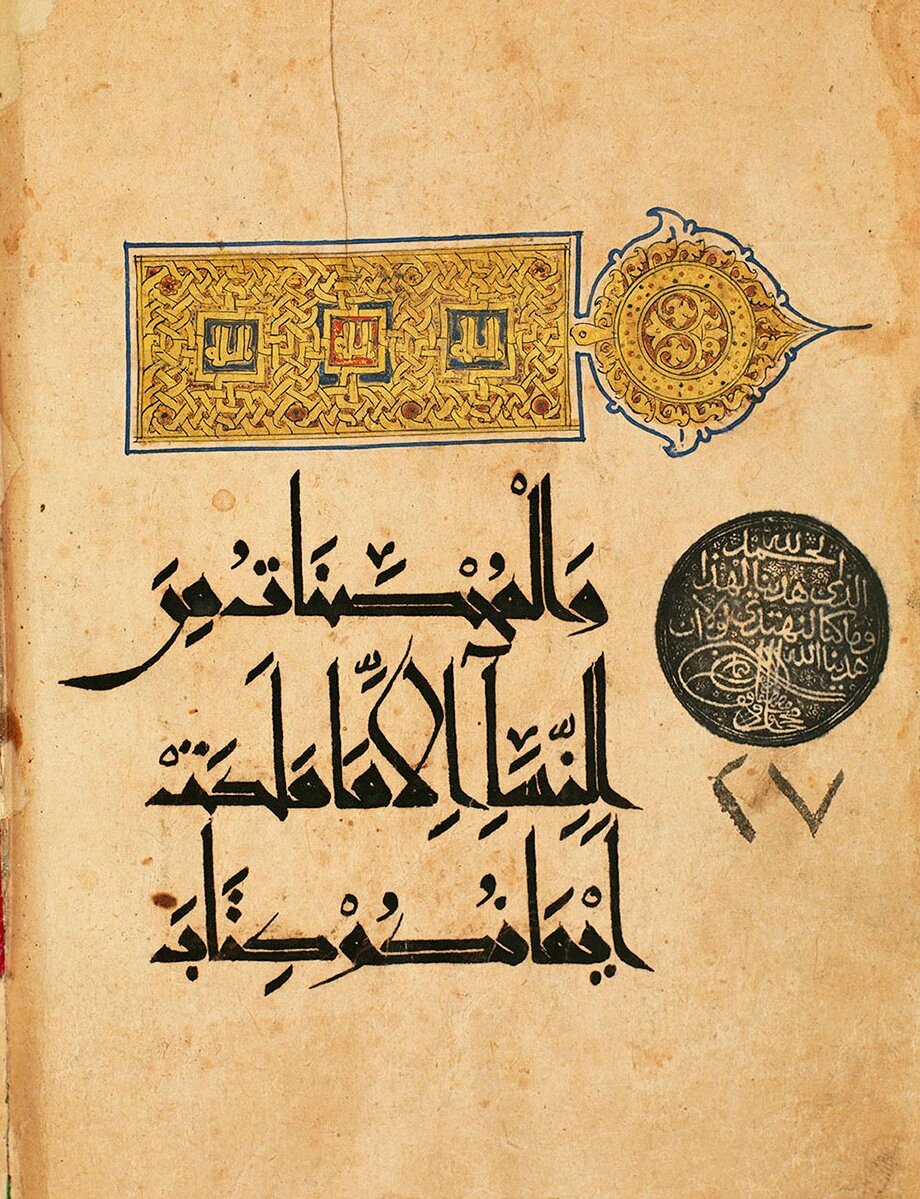 الله الله الله
وَالْمُحْصَنَاتُ مِنَ
النِّسَآءِ اِلَّا مَا مَلَكَتْ
اَيْمَانُكُمْ كِتَابَ
الحمد لله
الذى هدينا لهذا
وما كنا لنهتدي لولا ان
هدينا الله
٢٧